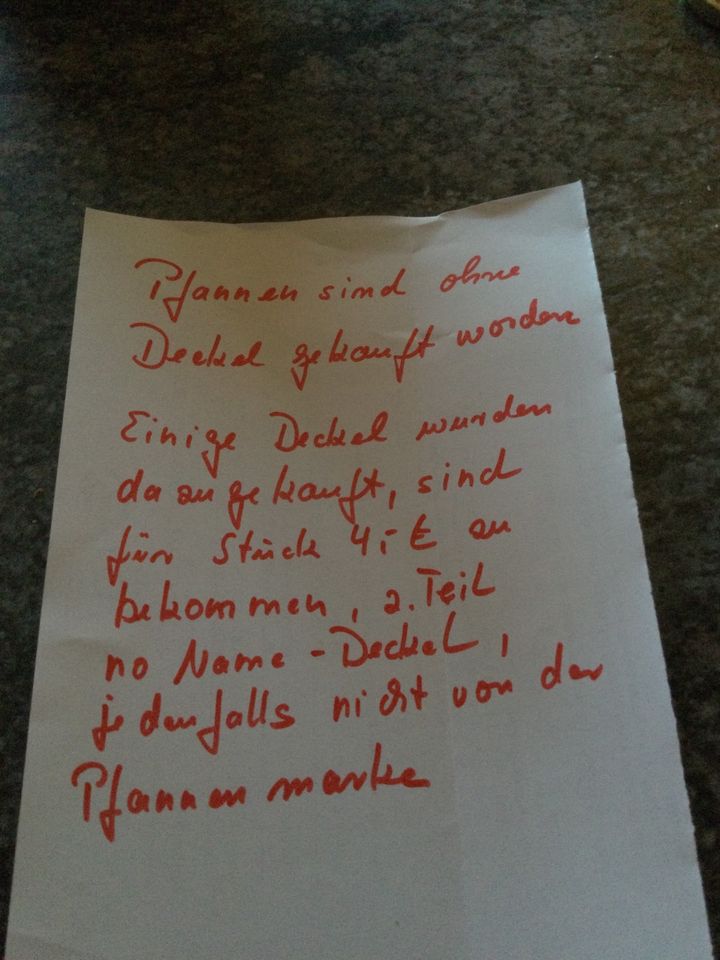 Pfannen sind ohne
Deckel gekauft worden
Einige Deckel wurden
dazugekauft, sind
für Stück 4,- € zu
bekommen, z. Teil
no Name - Deckel,
jedenfalls nicht von der
Pfannenmarke